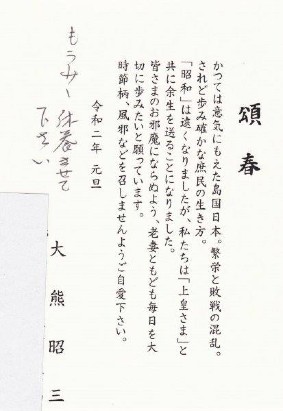 頌春
かつては意気にもえた島国日本。繁栄と敗戦の混乱。
されど歩み確かな庶民の生き方。
「昭和」は遠くなりましたが、私たちは「上皇さま」と
共に余生を送ることになりました。
皆さまのお邪魔にならぬよう、老妻ともども毎日を大
切に歩みたいと願っています。
時節柄、風邪などを召しませんようご自愛下さい。
令和二年 元旦
休養させて
下さい
大熊昭三